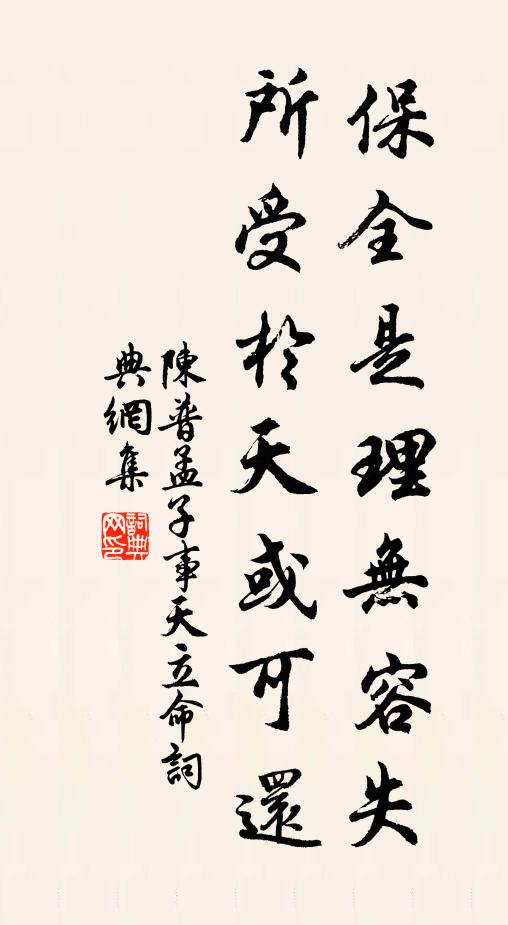 保全是理無容失
所受於天或可還
陳普孟子事天立命詞
典網集
詞典
网印